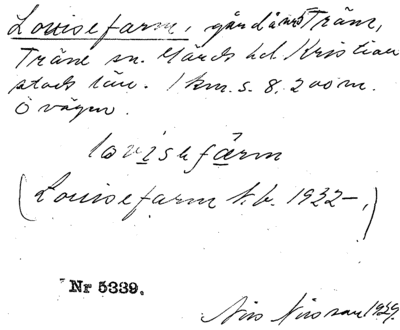 Louisefarm, gård i Träne,
Träne sn. Gärds hd. Kristian
stads län. 1 km. s. 8. 200 m.
Ö vägen.
lovisefàrm
(Louisefarm t. b. 1932–,)
Nr 5339.
Nils Nilsson 1929.